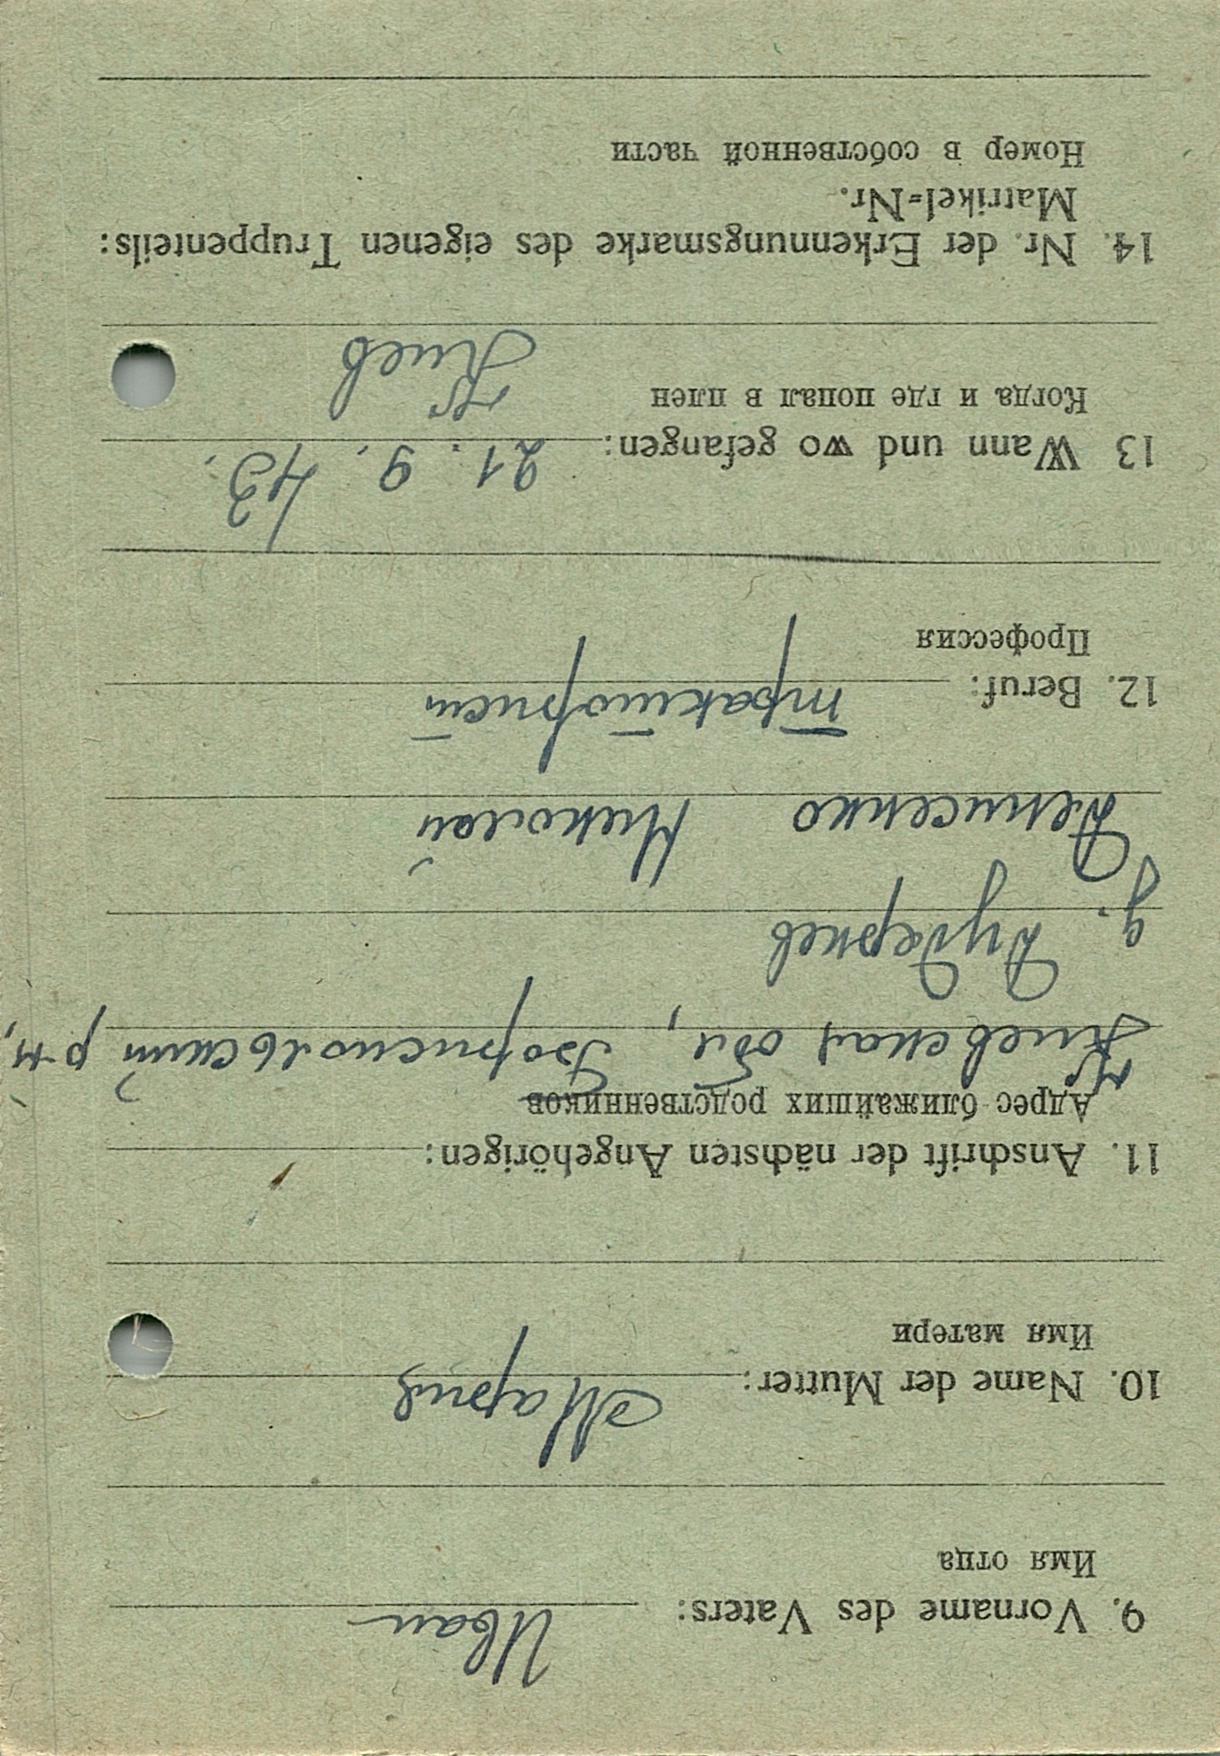 9. Vorname des Vaters: Иван
Имя отца
10. Name der Mutter: Мария
Имя матери
11. Anschrift der nächsten Angehörigen:
Адрес ближайших родственников
Киевская обл, Бориспольский р-н,
д.
Денисенко Николай
12. Beruf: тракторист
Профессия
13 Wann und wo gefangen: 21. 9. 43.
Когда и где попал в плен
Киев
14. Nr. der Erkennungsmarke des eigenen Truppenteils:
Matrikel-Nr.
Номер в собственной части